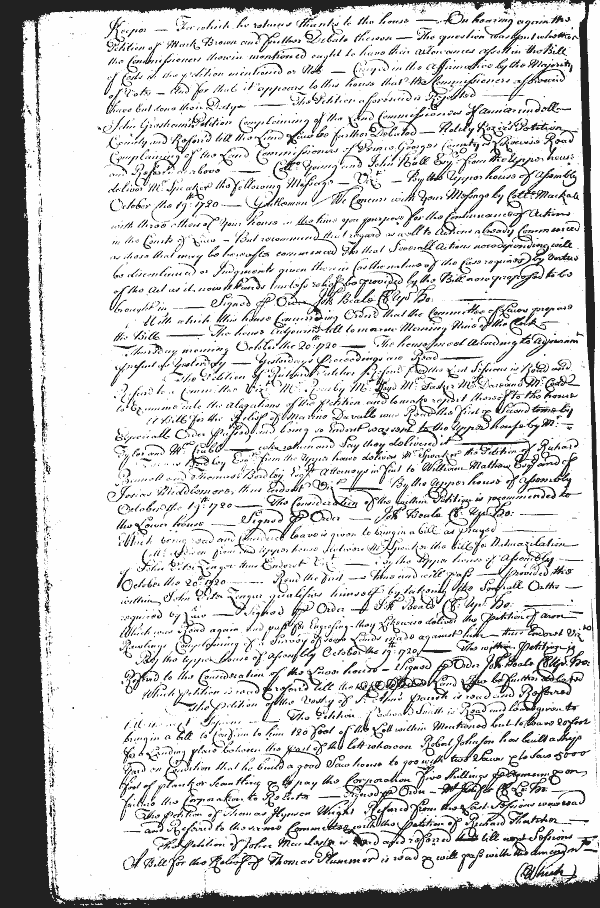 Keeper — For which he returns thanks to the house — On hearing again the
Petition of Mark Brown and further Debate thereon — The question was put whether
the Commissioners therein mentioned ought to have their allowances as set in the Bill
of Costs in the petition mentioned or Not — Carryed in the Affirmative by the Majority
of Vote — And for that it appears to this house that the Commissioners aforesaid
have but done their Dutys — The Petition aforesaid is Rejected —
John Gresham Petition Complaining of the Land Commissioners of Annarundell
County and Referred till the Land Law be further Debated — Petition
Complaining of the Land Commissioners of Prince Georges County is likewise Read
and Referred as above — Coll Young and John Hall Esqr from the Upper house
deliver Mr Speaker the following Message — Vizt — By the Upper house of Assembly
October the 19th 1720 — Gentlemen — We Concur with Your Message by Coll Mackall
with three others of Your house in the time you propose for the Continuance of Actions
in the Courts of Law — But recommend that regard as well to Actions already Commenced
as those that may be hereafter commenced for that Severall Actions now depending will
be discontinued or Judgments given therein as the nature of the case requires by virtue
of the Act as it now stands unless relief be provided by the Bill now proposed to be
brought in — Signed p Order Jos Beale Cl Up Ho:
With which this house Concurring Orderd that the Committee of Laws prepare
the Bill — The house adjourns till to morrow Morning Nine of the Clock
Thursday morning October the 20th 1720 — The house met According to Adjournmt
present as Yesterday — Yesterdays Proceedings are Read —
The Petition of Refered from the last Sessions is Read and
Referd to a Committee Vizt Mr Mr Mr Tasker Mr and Mr
to Examine into the Allegations of the petition and to make report thereof to the house
A Bill for the Relief of Marine Duvall was Read the first & Second time by
Especiall Order passed and being so Endorst was sent to the Upper house by Mr
Tyler and Mr — who return and Say they delivered it —
Bordley Esqr from the Upper house delivers Mr Speaker the Petition of Richard
Bennett and Thomas Bordley Esqrs Attorneys in fact to William Esqr and of
Jonas Middlemore, thus Endorst Vizt — By the Upper house of Assembly
October the 19th 1720 — The Consideration of the within Petition is recommended to
the Lower house — Signed p Order — Jos Beale Cl Up Ho:
Which being read and Considered leave is given to bring in a bill as prayed —
Coll from the Upper house delivers Mr Speaker the Bill for Naturalization
of John Peter Zenger thus Endorst Vizt — By the Upper house of Assembly
October the 20th 1720 — Read the first time and will pass — provided the
within John Peter Zenger qualifies himself by taking the Severall Oaths
required by Law — Signed p Order — Jos Beale Cl Up Ho:
Which was Read again and past for Engrossing they likewise deliver the Petition of Aaron
Rawlings Complaining of a Survey of some Lands made against him — thus Endorst Vizt
By the Upper house of Assembly October the 19th 1720 — The within Petition is
Referd to the Consideration of the Lower house — Signed p Order Jos Beale Cl Up Ho:
Which Petition is read & referd till the Land Law be further debated
The petition of the Vestry of St Anns Parish is read and Referred
till next Sessions — The Petition of Smith is Read and leave given to
bring in a bill to Confirm to him 120 foot of the Lott within Mentioned but to leave 20 foot
for a Landing place between the part of the lott whereon Robert Johnson has built a ship
Yard on Condition that he build a good Saw house to go with two Saws & to Saw 5000
foot of plank or Scantling & to pay the Corporation five shillings p annum or on
failure the Corporation to Reenter — Signed p Order Cl Lo Ho
The Petition of Thomas Hynson Wright Refered from the last Sessions was read
and Refered to the same Committee with the petition of Richard Thatcher
The Petition of John is read and referred till next Sessions
A Bill for the Relief of Thomas Plummer is read & will pass with the amendmt
(Which